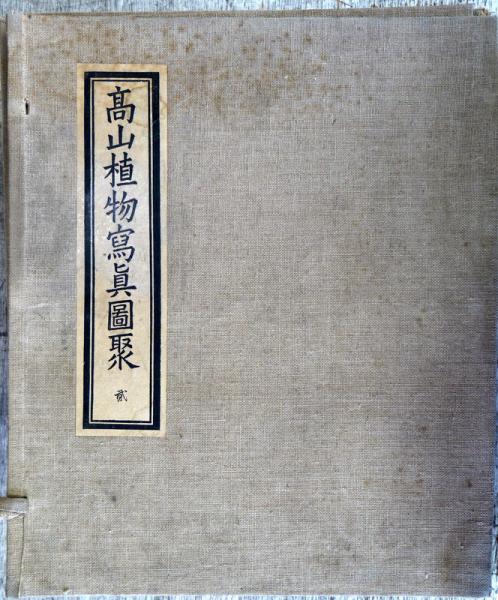 髙山植物寫眞圖聚
貳